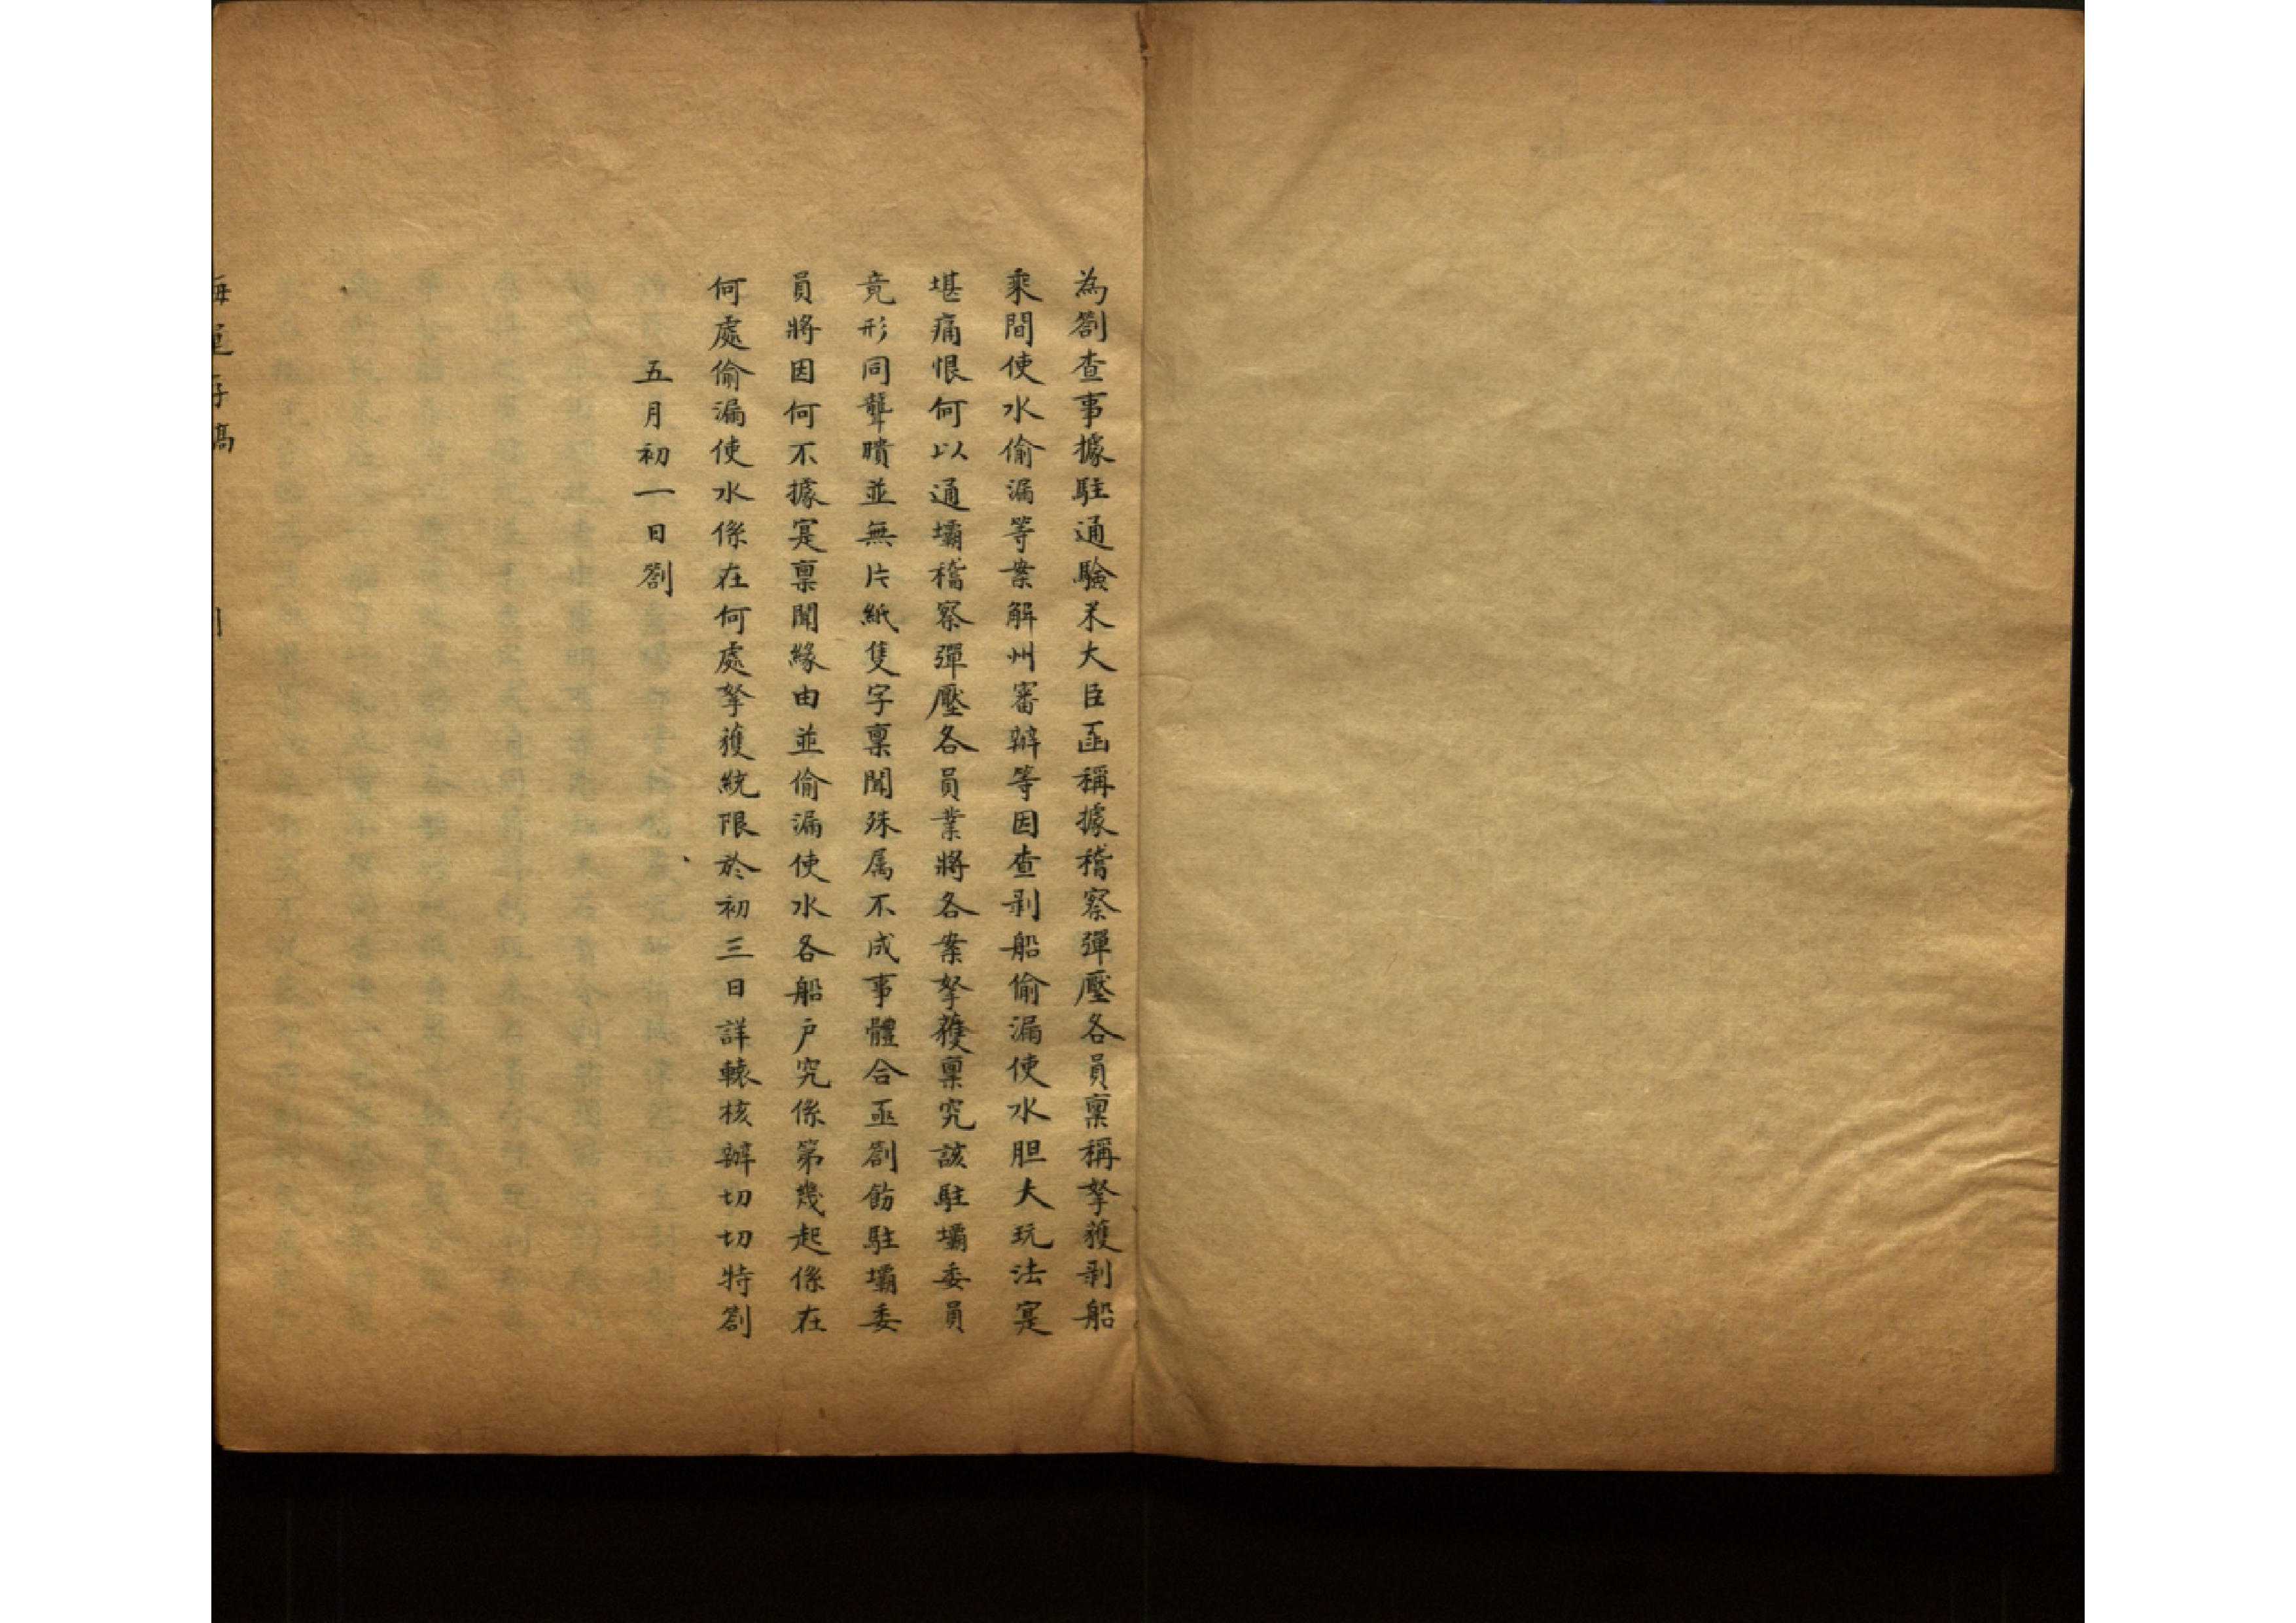 為劄查事據駐通驗米大臣函稱據稽察彈壓各員稟稱拏獲剥船
乘間使水偷漏等案解州審辦等因查剥船偷漏使水胆大玩法寔
堪痛恨何以通壩稽察彈壓各員業將各案拏獲稟究該駐壩委員
竟形同聾瞶並無片紙隻字稟聞殊属不成事體合亟劄飭駐壩委
員將因何不據寔稟聞緣由並偷漏使水各船户究係第幾起係在
何處偷漏使水係在何處拏獲統限於初三日詳轅核辦切切特劄
五月初一日劄
海運存稿